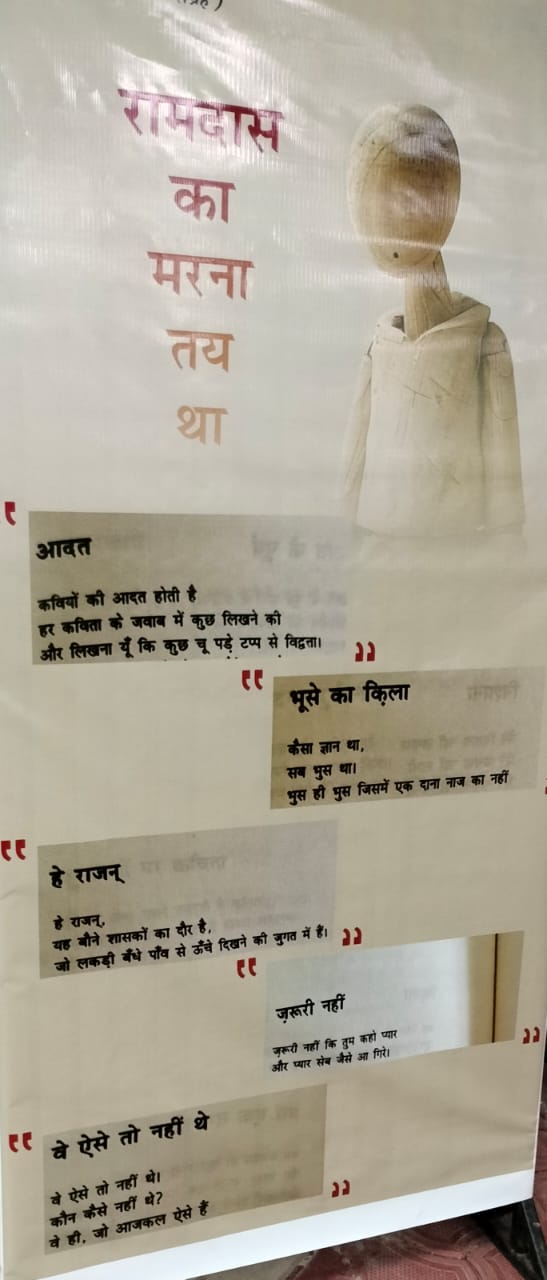 रामदास
का
मरना
तय
था
आदत
कवियों की आदत होती है
हर कविता के जवाब में कुछ लिखने की
और लिखना यूँ कि कुछ चू पड़े टप्प से विद्वता।
भूसे का क़िला
कैसा ज्ञान था,
सब भुस था।
भुस ही भुस जिसमें एक दाना नाज का नहीं
हे राजन्
हे राजन्,
यह बौने शासकों का दौर है,
जो लकड़ी बँधे पाँव से ऊँचे दिखने की जुगत में हैं।
ज़रूरी नहीं
ज़रूरी नहीं कि तुम कहो प्यार
और प्यार सेब जैसे आ गिरे।
वे ऐसे तो नहीं थे
वे ऐसे तो नहीं थे।
कौन कैसे नहीं थे?
वे ही, जो आजकल ऐसे हैं